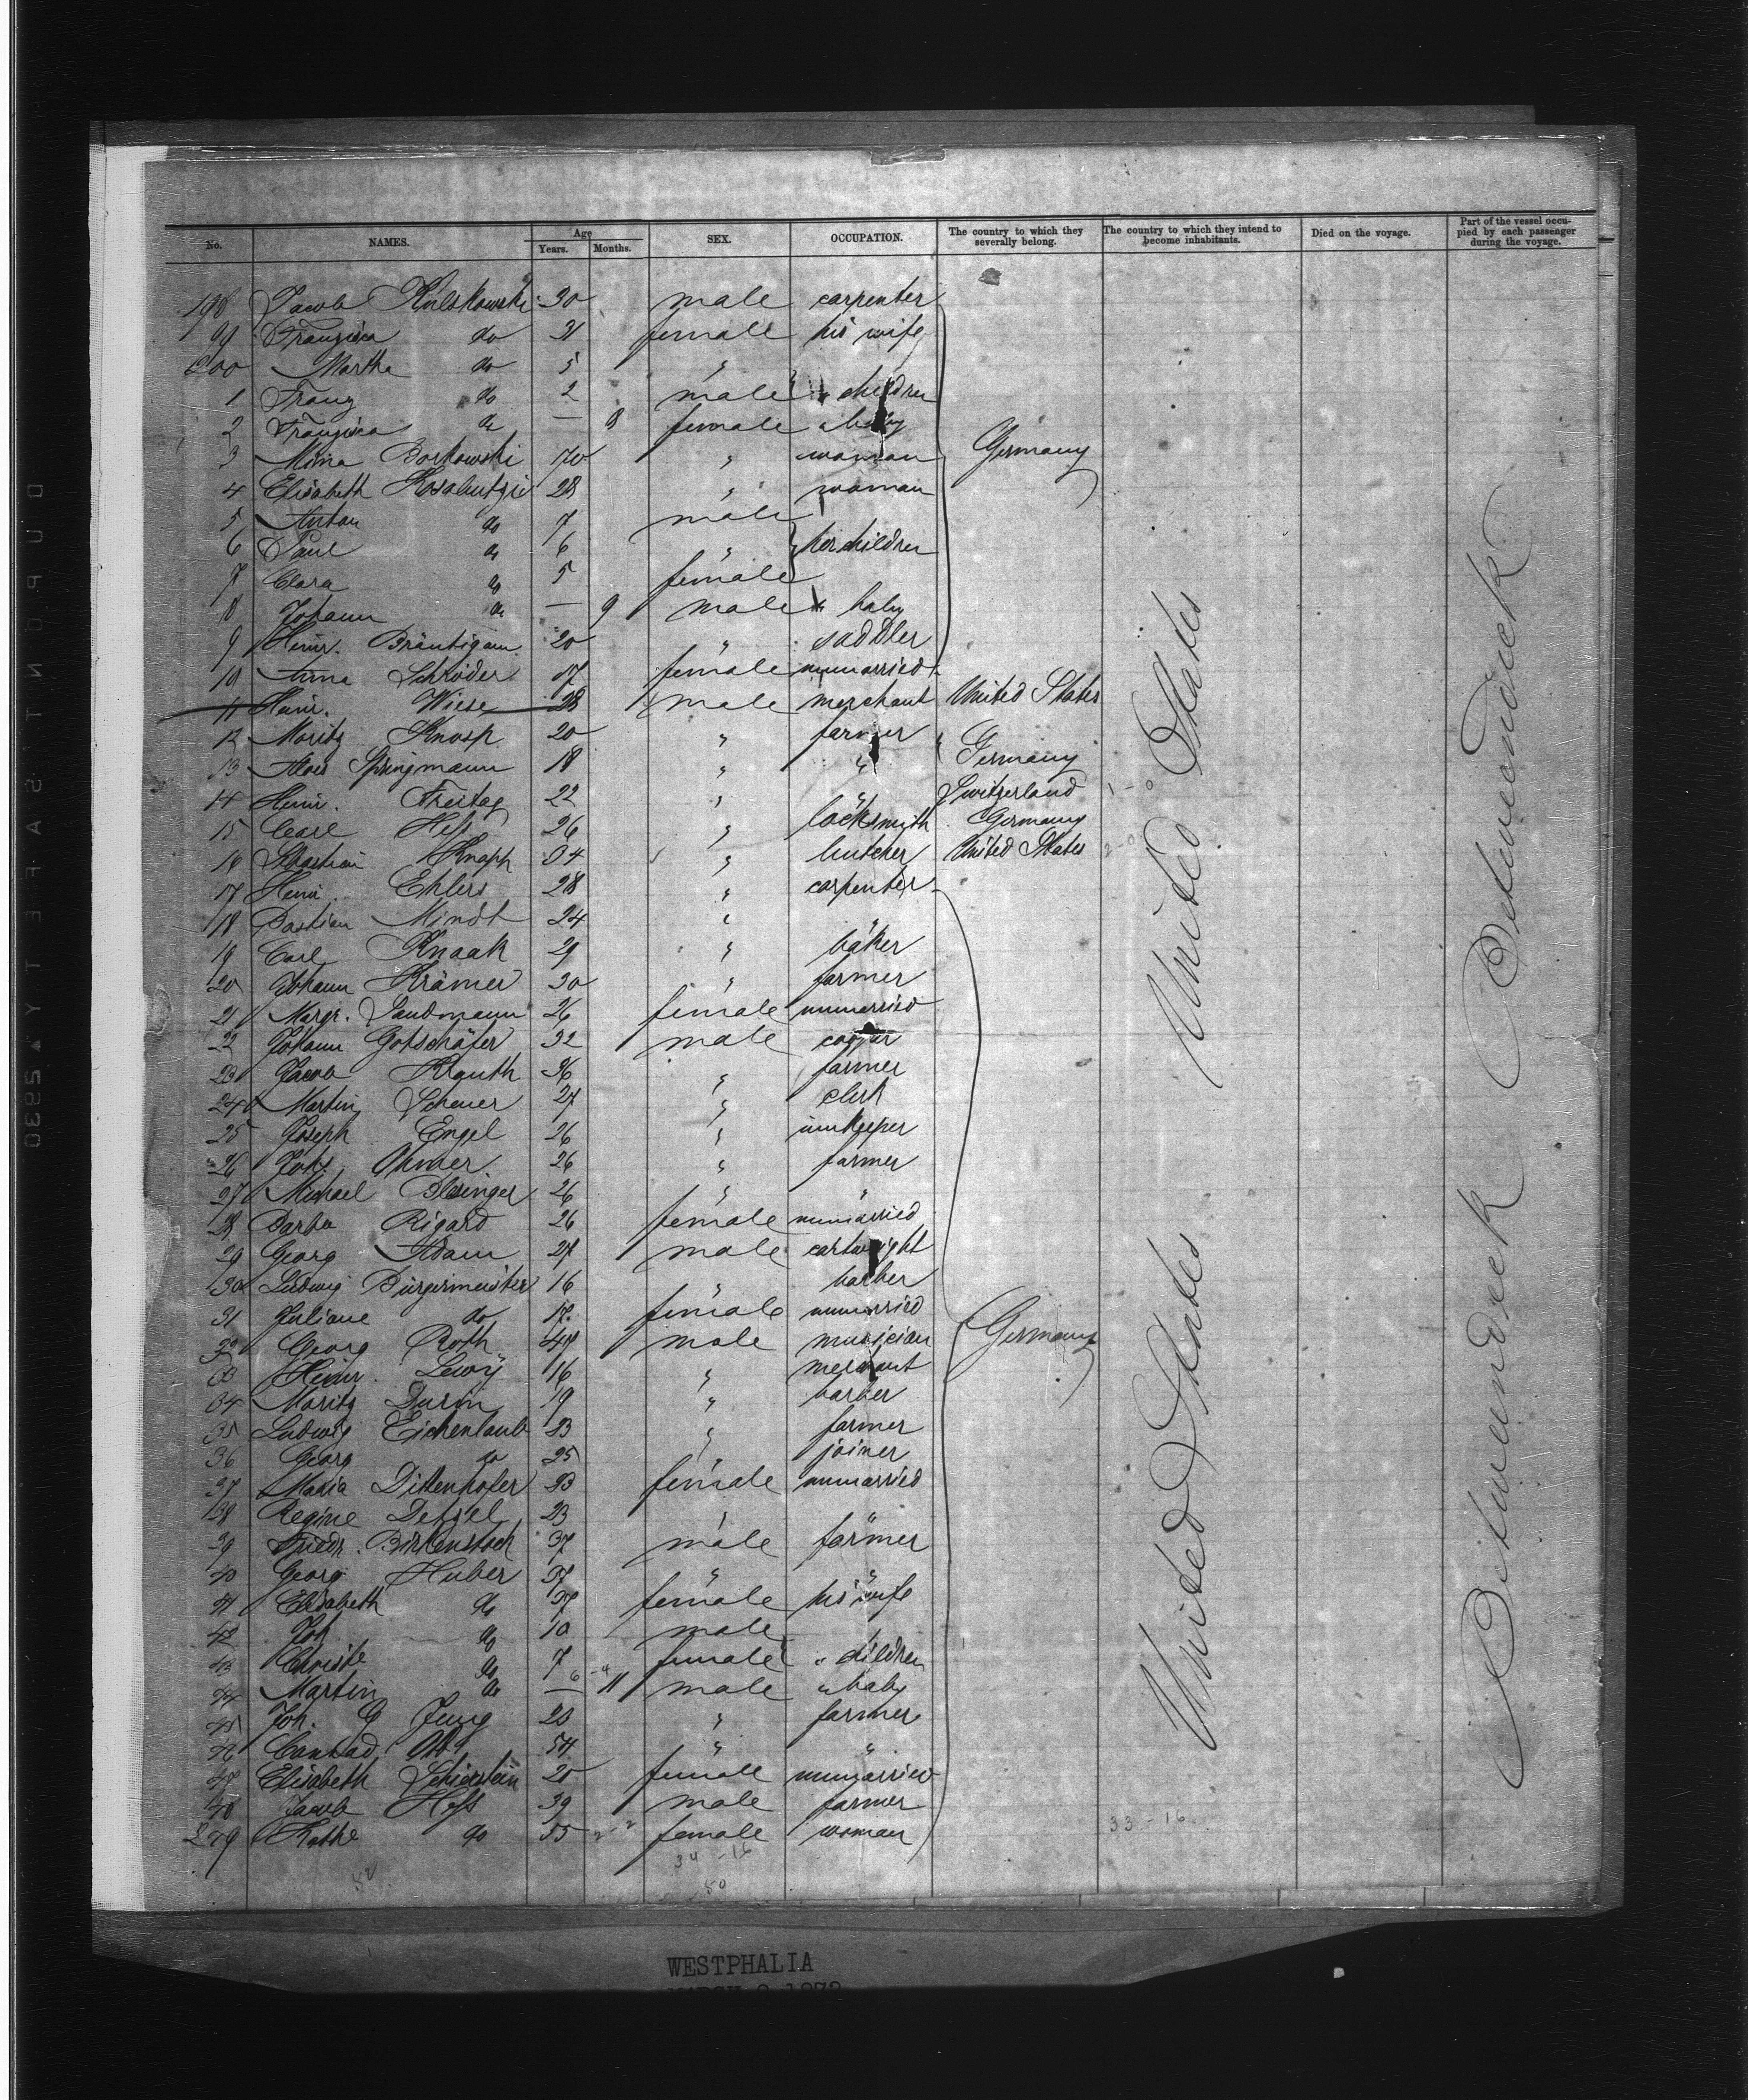 No. NAMES. Age Years. Months. SEX. OCCUPATION. The country to which they severally belong. The country to which they intend to become inhabitants. Died on the voyage. Part of the vessel occupied by each passenger during the voyage.
198 Jacob 30 male carpenter
99 Franziska do 31 female his wife
200 Martha do 5 "
1 Franz do 2 male " children
2 Franziska do — 8 female " baby
3 Mina Borkowski 70 " woman Germany
4 Elisabeth 28 " woman
5 Anton do 7 male
6 Paul do 6 " her children
7 Clara do 5 female
8 Johann do — 9 male " baby
9 Heinr. Bräutigam 20 " saddler
10 Anna Schröder 17 female unmarried
11 Heinr. Wiese 28 male merchant United States
12 Moritz Knosp 20 " farmer
13 Alois Springmann 18 " " Germany
14 Heinr. Freitag 22 " " Switzerland 1-0
15 Carl Heß 26 " locksmith Germany
16 Sebastian Knapp 34 " butcher United States 2-0
17 Heinr. Ehlers 28 " carpenter
18 Bastian Mindt 24 " "
19 Carl Knaak 29 " baker
20 Johann Krämer 30 " farmer
21 Margr. Sandmann 26 female unmarried
22 Johann Gotschäfer 32 male
23 Jacob Knuth 36 " farmer
24 Martin Scheuer 27 " clerk
25 Joseph Engel 26 " innkeeper
26 Johs. Ohmer 26 " farmer
27 Michael Blesinger 26 " "
28 Barba Rigard 26 female unmarried
29 Georg Adam 27 male cartwright
30 Ludwig Bürgermeister 16 " barber
31 Juliane do 17 female unmarried
32 Georg Roth 47 male musician Germany
33 Heinr. Lewy 16 " merchant
34 Moritz Durm 19 " barber
35 Ludwig Eichenlaub 23 " farmer
36 Georg do 25 " joiner
37 Maria Dittenhofer 23 female unmarried
38 Regine 23 " "
39 Friedr. Birkenstock 37 male farmer
40 Georg Huber 37 " "
41 Elisabeth do 37 female his wife
42 Joh. do 10 male
43 Christe do 7 female " children
44 Martin do — 11 male " baby
45 Joh. G Jung 20 " farmer
46 Conrad Otto 54 " "
47 Elisabeth 20 female unmarried
48 Jacob Hoß 39 male farmer
249 Kathe do 55 female woman
United States
United States
33-16
34-16
50
52
WESTPHALIA
DUPONT SAFETY 2930